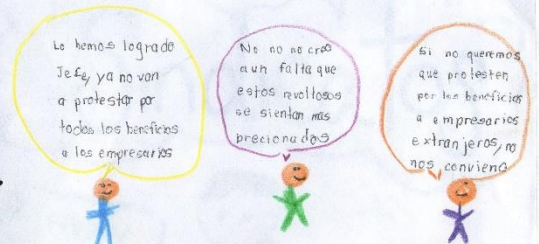 Lo hemos logrado
Jefe, ya no van
a protestar por
todos los beneficios
a los empresarios
No no no creo
aun falta que
estos revoltosos
se sientan mas
precionados
Si no queremos
que protesten
por los beneficios
a empresarios
extranjeros, no
nos conviene